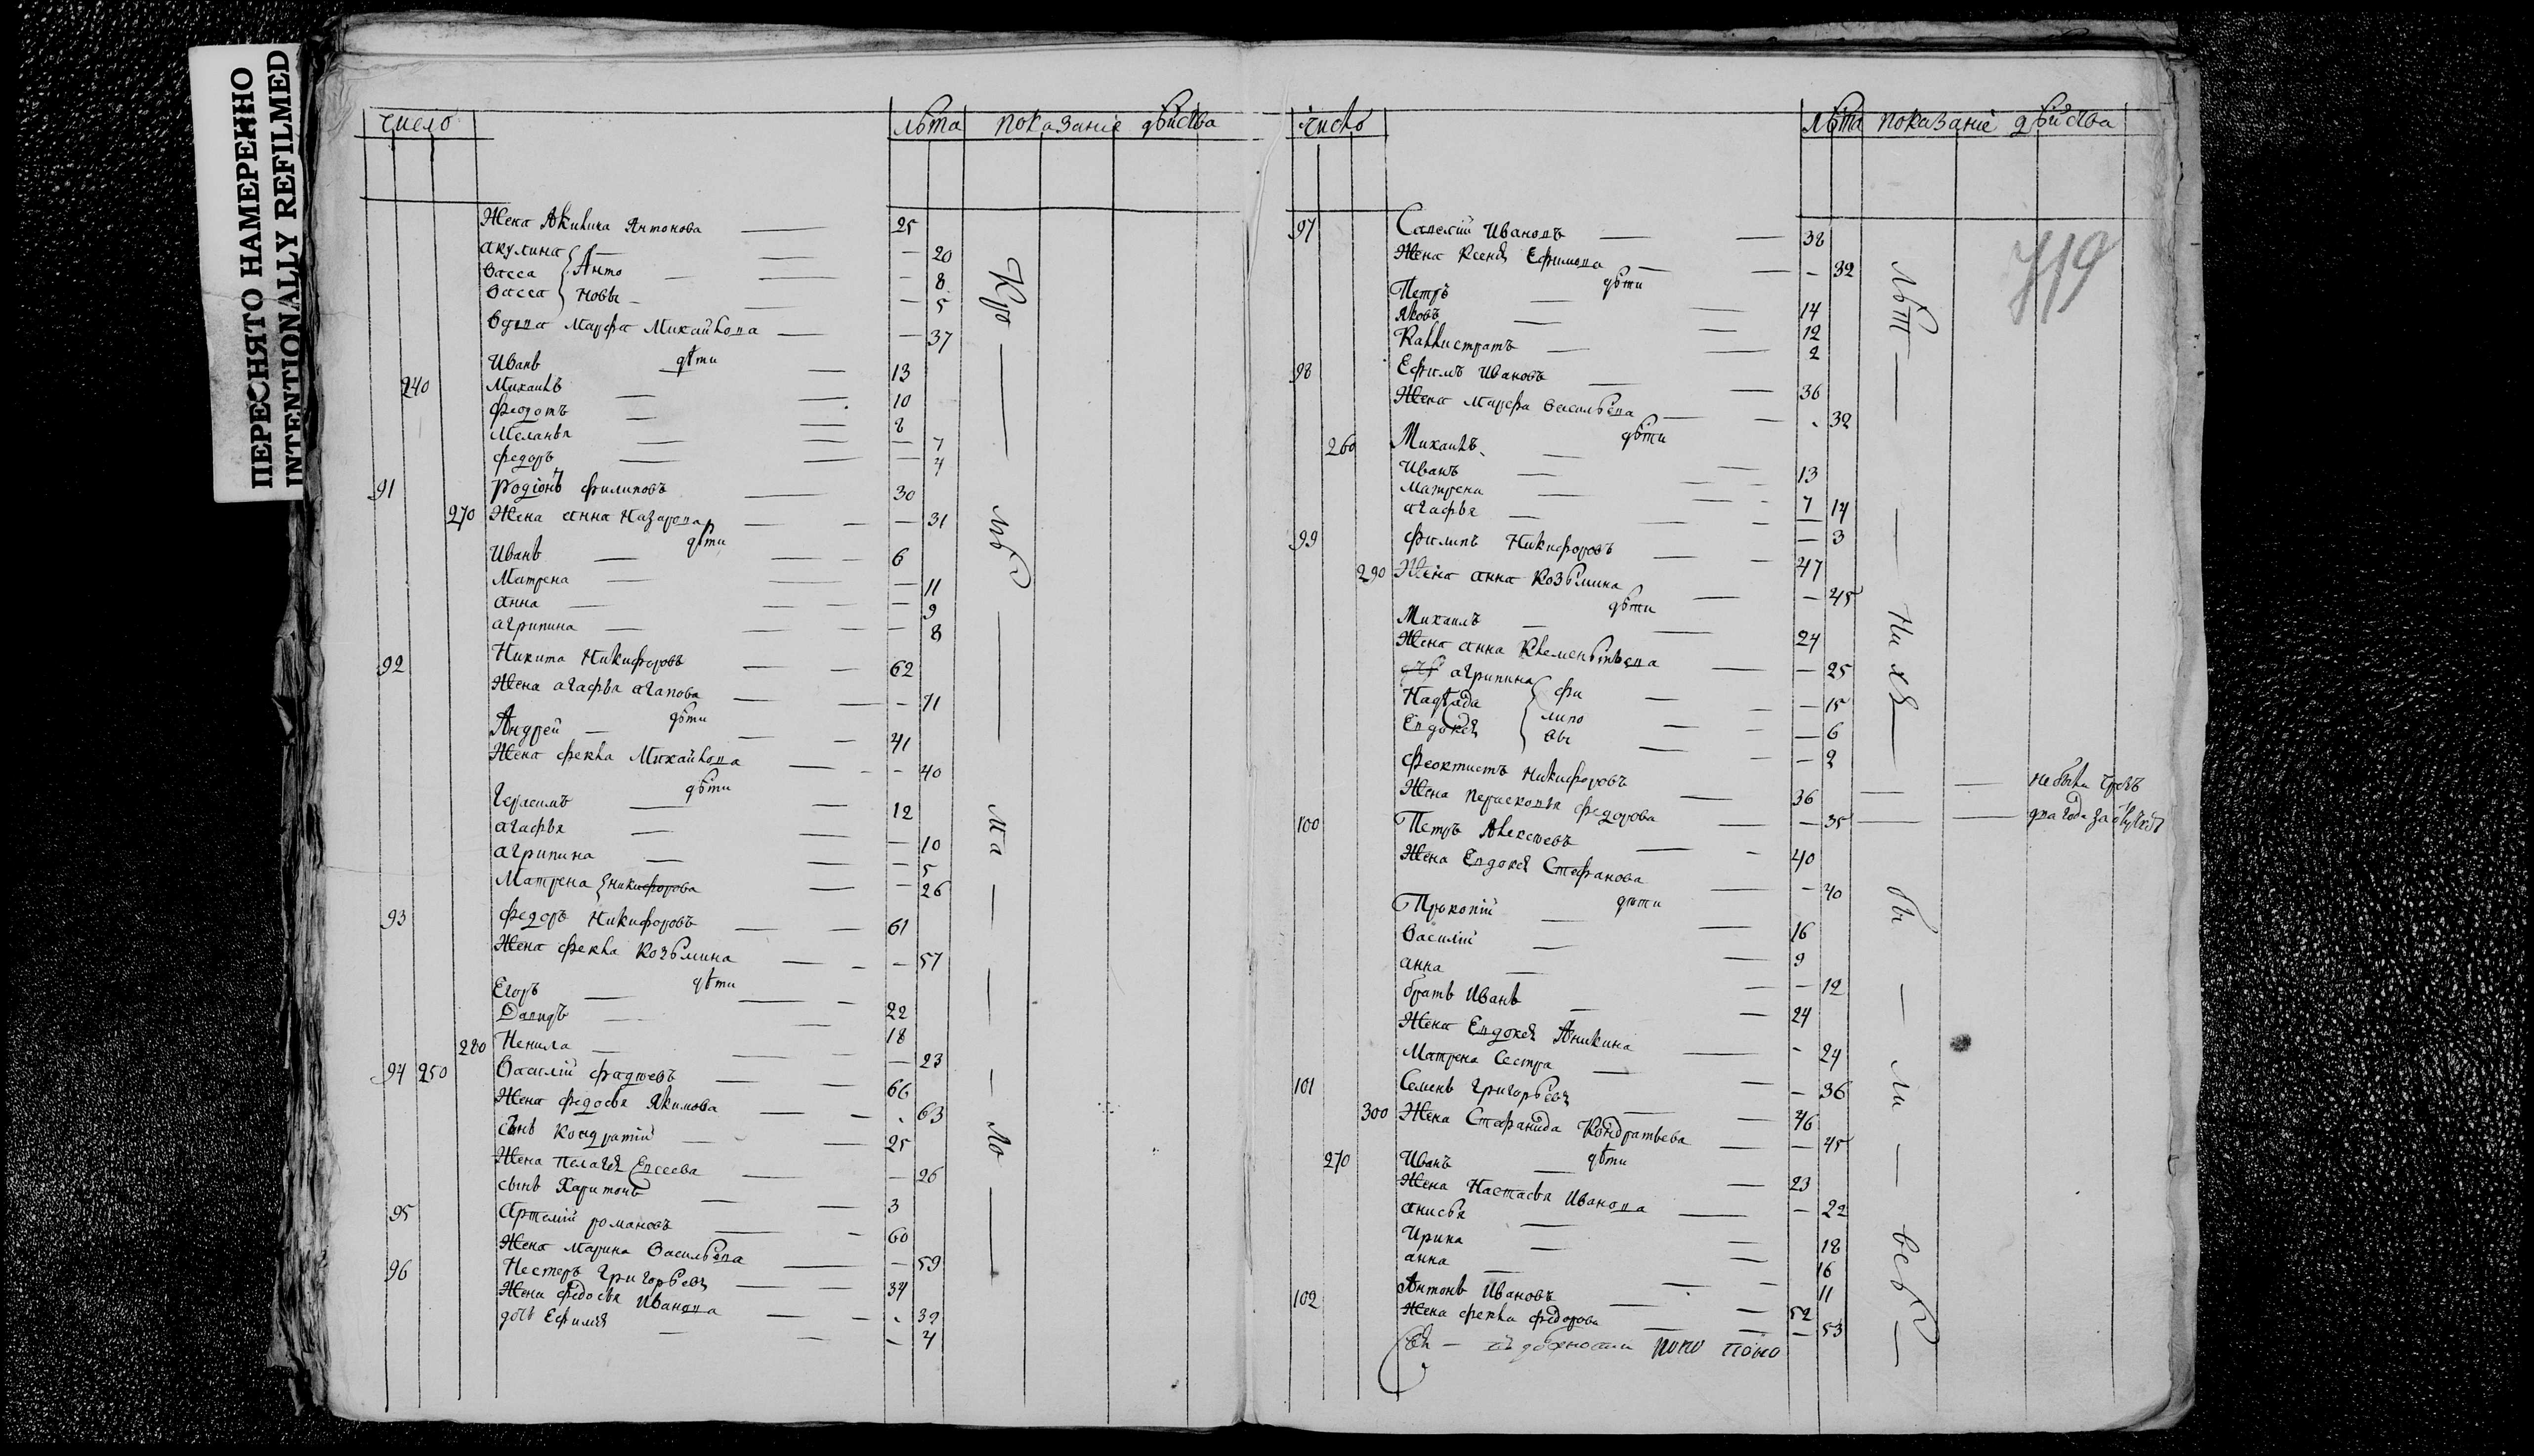 ПЕРЕСНЯТО НАМЕРЕННО
INTENTIONALLY REFILMED
число лѣта показаніе дѣйства
Жена Акилина Антонова 25
акулина Анто 20
Васса новы 8
Васса 5
Вдова Марфа Михайлова 37
дѣти
Иванъ 13
240 Михаилъ 10
Федотъ 8
Меланья 7
Федоръ 4
91 Родіонъ Филиповъ 30
270 Жена анна Назарова 31
дѣти
Иванъ 6
Матрена 11
анна 9
агрипина 8
92 Никита Никифоровъ 62
Жена агафья агапова 71
дѣти
Андрей 41
Жена Фекла Михайлова 40
дѣти
Герасимъ 12
агафья 10
агрипина 5
Матрена никифорова 26
93 Федоръ Никифоровъ 61
Жена Фекла Козьмина 57
дѣти
Егоръ 22
Давидъ 18
280 Ненила 23
94 250 Василій Фадѣевъ 66
Жена Федосья Якимова 63
сынъ Кондратій 25
Жена Пелагея Евсеева 26
сынъ Харитонъ 3
95 Артемій романовъ 60
Жена Марина Васильева 59
96 Нестеръ Григорьевъ 34
Жена Федосья Иванова 32
дочь Ефимія 4
Кро
мѣ
ма
ло
число лѣта показаніе дѣйства
719
97 Савелій Ивановъ 38
Жена Ксенія Ефимова 32
дѣти
Петръ 14
Яковъ 12
Каллистратъ 2
98 Ефимъ Ивановъ 36
Жена Марфа Васильева 32
дѣти
260 Михаилъ 13
Иванъ 7
Матрена 14
агафья 3
99 Филипъ Никифоровъ 47
290 Жена анна Козьмина 45
дѣти
Михаилъ 24
Жена анна Клементьева 25
агрипина фи 15
Надѣжда липо 6
Евдокія вы 2
Феоктистъ Никифоровъ 36 не были чрезъ
Жена Перасковья Федорова 35 два года за
100 Петръ Алексѣевъ 40
Жена Евдокія Стефанова 40
дѣти
Прокопій 16
Василій 9
анна 12
братъ Иванъ 24
Жена Евдокія Аникина 24
Матрена Сестра 36
101 Семенъ Григорьевъ 46
300 Жена Стефанида Кондратьева 45
дѣти
270 Иванъ 23
Жена Настасья Иванова 22
анисья 18
Ирина 16
анна 11
102 Антонъ Ивановъ 52
Жена Фекла Федорова 53
лѣт
нихъ
бы
ли
всѣ